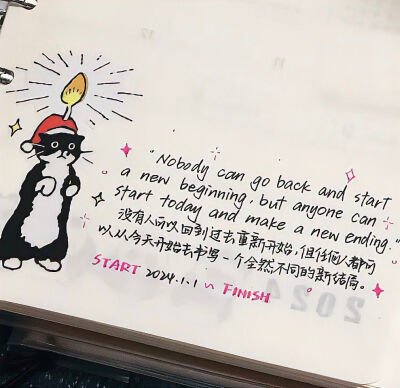 "Nobody can go back and start
a new beginning, but anyone can
start today and make a new ending."
没有人可以回到过去重新开始,但任何人都可
以从今天开始去书写一个全然不同的新结局。
START 2024.1.1 ~ FINISH